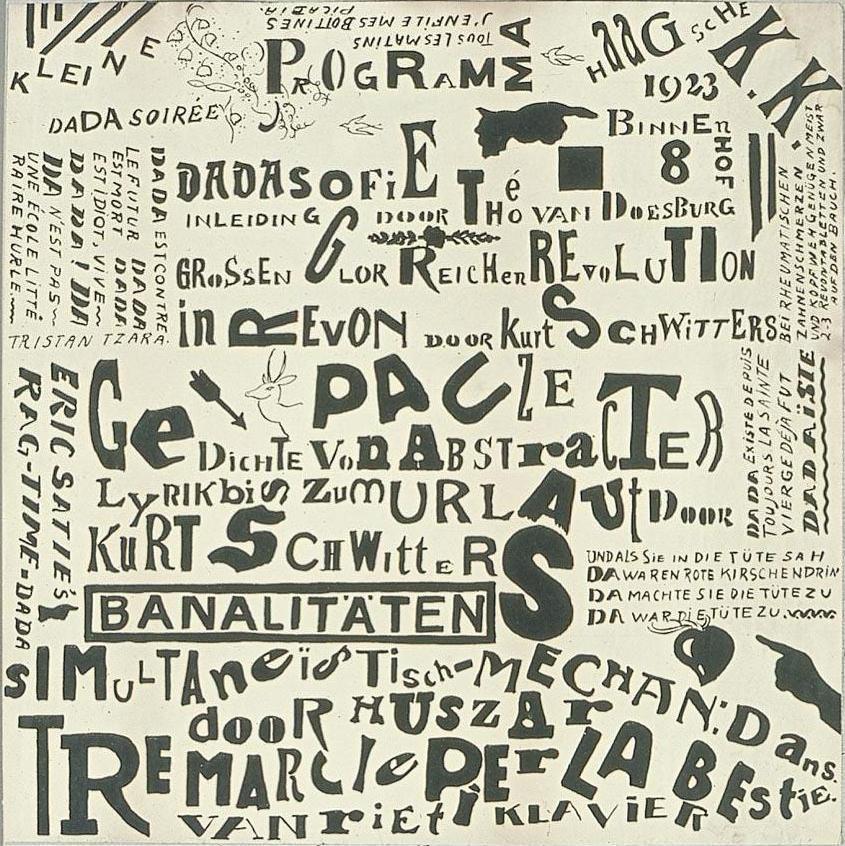 TOUS LES MATINS
J'ENFILE MES BOTTINES
PICABIA.
KLEINE
DADA SOIRÉE
PROGRAMMA
HAAGSCHE K.K.
1923
BINNENHOF 8
DADASOFIE
INLEIDING DOOR THÉO VAN DOESBURG
GROSSEN GLORREICHEN REVOLUTION
in REVON DOOR Kurt SCHWITTERS
DADA EST CONTRE
LE FUTUR DADA
EST MORT DADA
EST IDIOT, VIVE
DADA! DA
DA N'EST PAS
UNE ÉCOLE LITTÉ
RAIRE HURLE
TRISTAN TZARA.
BEI RHEUMATISCHEN
ZAHNENSCHMERZEN
UND KOPFWEH GENÜGEN MEIST
2-3 REVONTABLETTEN UND ZWAR
AUF DEN BAUCH.
PAUZE
ERIC SATIE'S
RAG-TIME=DADA
GeDICHTE VON ABSTracTER
LyRIK biS ZUM URLAUt DOOR
KURT SCHWittERS
DADA EXISTE DEPUIS
TOUJOURS LA SAINTE
VIERGE DÉJÀ FUT
DADAÏSTE
BANALITÄTEN
UND ALS SIE IN DIE TÜTE SAH
DA WAREN ROTE KIRSCHEN DRIN
DA MACHTE SIE DIE TÜTE ZU
DA WAR DIE TÜTE ZU.
SIMULTANeïSTisch-MECHAN: Dans.
dooR HUSZAr
TRE MARCIe PEr LA BEStie.
VAN rieti KLAVIER